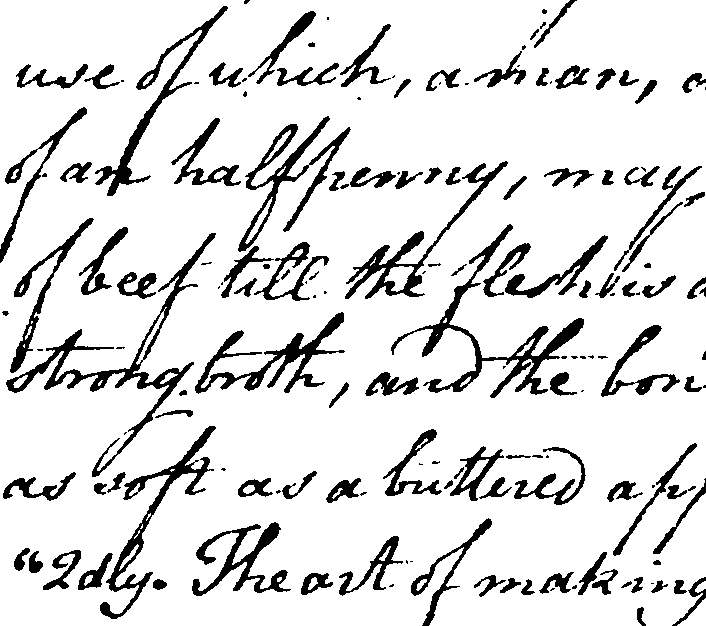 use of which, a man,
of an halfpenny, may
of beef till the flesh is
strong broth, and the bon
as soft as a buttered app
“2dly. The art of making